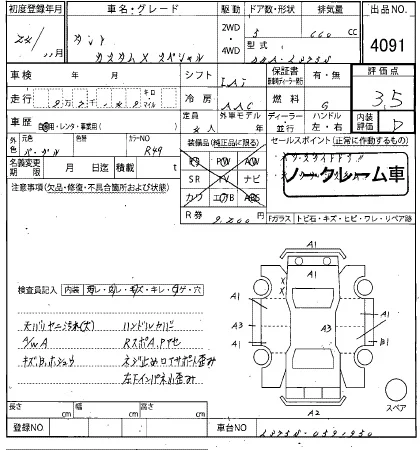 初度登録年月 車名・グレード 駆動 ドア数・形状 排気量 出品NO.
24/11月 タント 2WD・4WD 5 660cc 4091
カスタムX スペシャル 型式
DBA-L375S
車検 年 月 シフト IAT 保証書 有・無 評価点
走行 キロ・マイル 冷房 AAC 燃料 G 3.5
車歴 自家用・レンタ・事業用( ) 定員 人 外車モデル 年 ディーラー・並行 ハンドル 左・右 内装評価 D
外色 元色 パープル 色替 カラーNO R49 装備品(純正品に限る) セールスポイント(正常に作動するもの)
名義変更期限 月 日 積載 t PS PW AW
ノークレーム車
注意事項(欠品・修復・不具合箇所および状態) SR TV ナビ
カワ エアB ABS
R券 9,200
Fガラス トビ石・キズ・ヒビ・ワレ・リペア跡
検査員記入 内装 ヨゴレ・ワレ・キズ・キレ・コゲ・穴
天バリヤニ汚れ(大) ハンドルカバー
A/WA RスポA,ヤセ
キズ,B,ホシュウ ネジ止めコアサポート歪み
左下インパネル歪み
A1
A1
A1 A1
A3 A3 A1
A1 B1
A2
スペア
長さ cm 幅 cm 高さ cm
登録NO 車台NO L375S-0591950